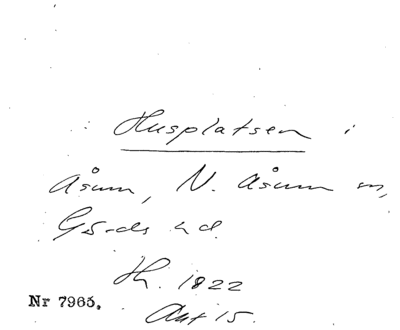 Husplatsen i
Åsum, N. Åsum sn,
Gärds hd.
Hh. 1822
Nr 7965.
Akt 15.